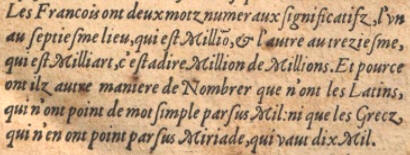 Les Francois ont deux motz numeraux ſignificatifz, l'vn
au ſeptieſme lieu, qui eſt Milliō, & l'autre au trezieſme,
qui eſt Milliart, c'eſtadire Million de Millions. Et pource
ont ilz autre maniere de Nombrer que n'ont les Latins,
qui n'ont point de mot ſimple par ſus Mil: ni que les Grecz,
qui n'en ont point par ſus Miriade, qui vaut dix Mil.